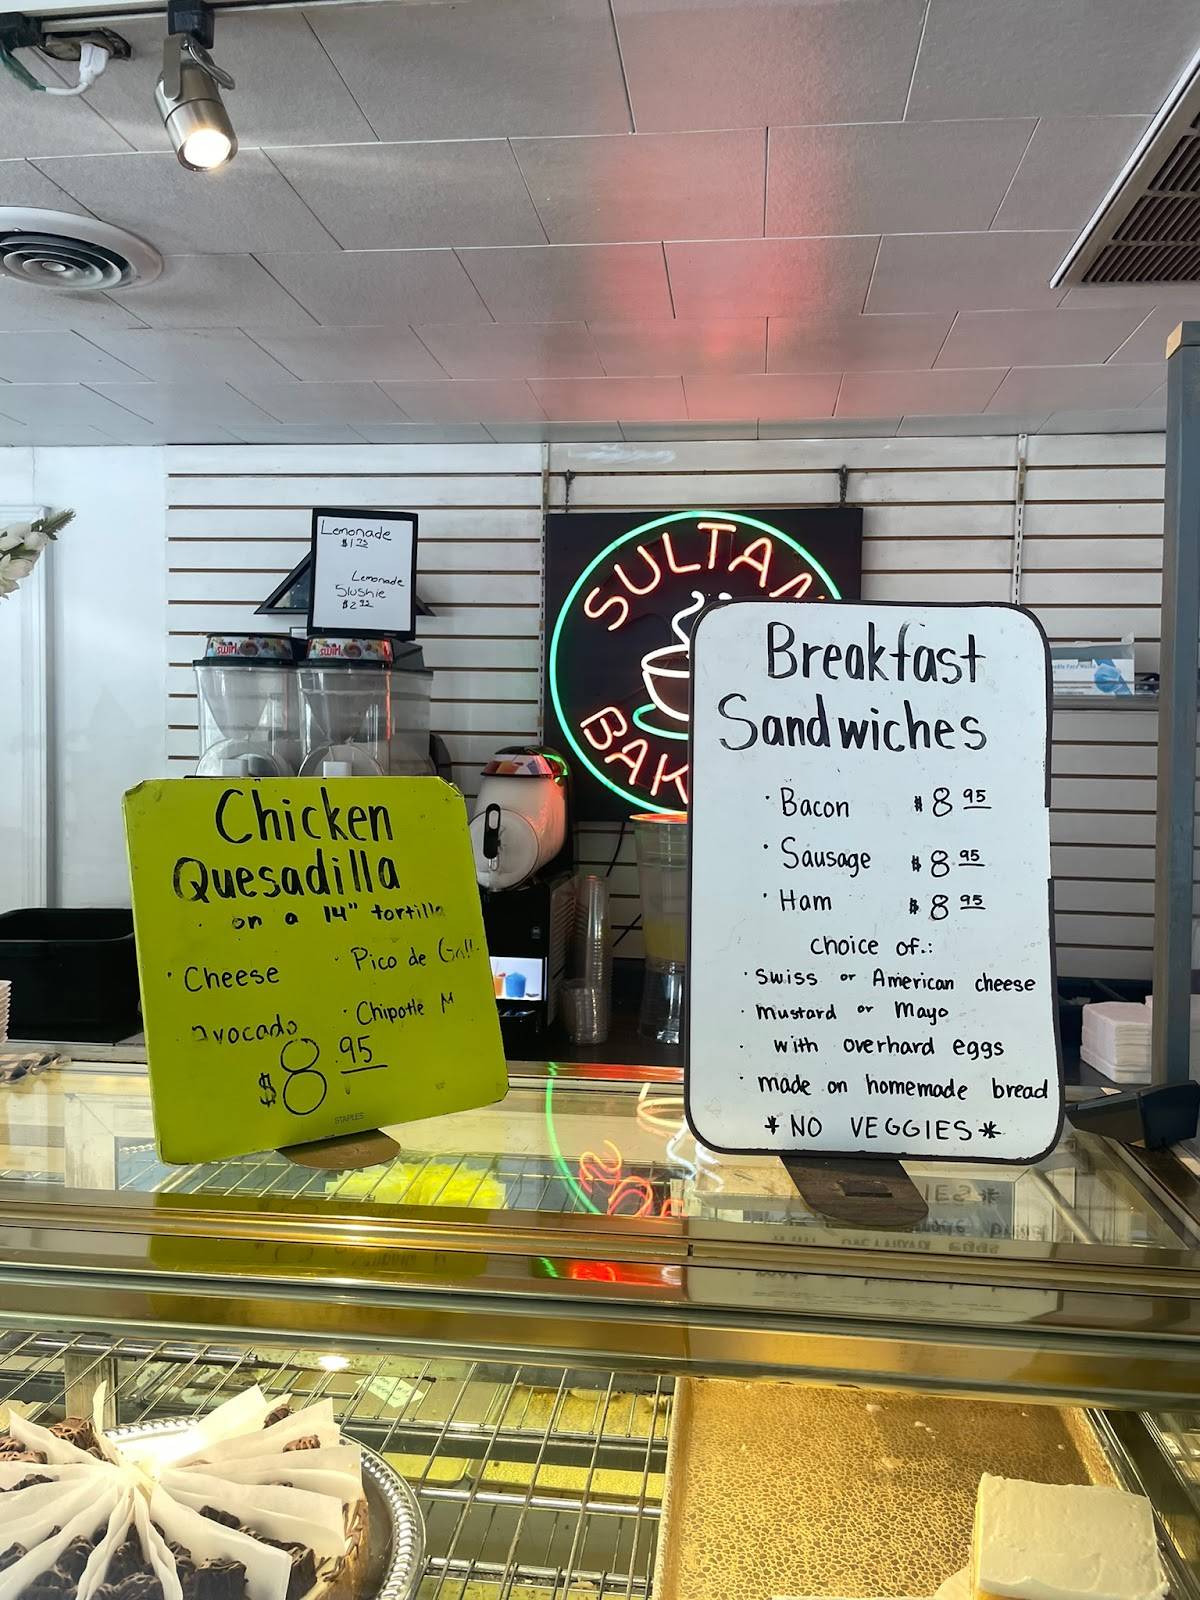 Lemonade
$1.75
Lemonade
Slushie
swirl
swirl
SULTAN
BAK
Chicken
Quesadilla
• on a 14" tortilla
• Cheese
• Pico de
• Chipotle M
avocado
$8.95
STAPLES
Breakfast
Sandwiches
• Bacon $8.95
• Sausage $8.95
• Ham $8.95
choice of:
• Swiss or American cheese
• mustard or Mayo
• with overhard eggs
• made on homemade bread
* NO VEGGIES *